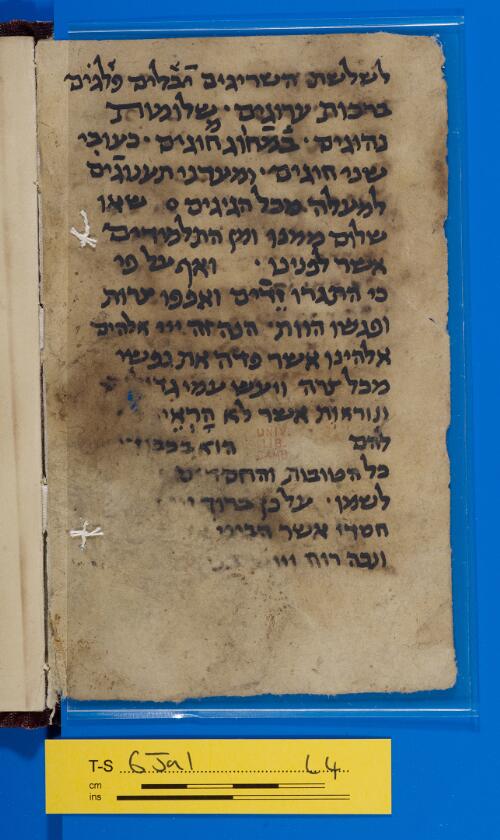 לשלשת השריגים תבלים פלגים
ברכות ערוגים ׳ שלומות
נהוגים ׳ במחוג חוגים ׳ כעובי
שיני חוגים ׳ ומעדני תענוגים
למעלה מכל הגיגים ο שאו
שלום ממנו ומן התלמודים
אשר לפנינו ׳ ואף על פי
כי התגרו זדים ואפפו צרות
ופגשו הוות׳ הנה זה ייי אלהים
אלהינו אשר פדה את נפשי
מכל צרה ועש עמי
ונוראות אשר לא
להם הוא
כל הטובות והחסדים
לשמו ׳ על כן ברוך ייי
חסדי אשר
רוח
UNIV.
LIB.
CAMB.
T-S 6 Ja 1 L4
cm
ins